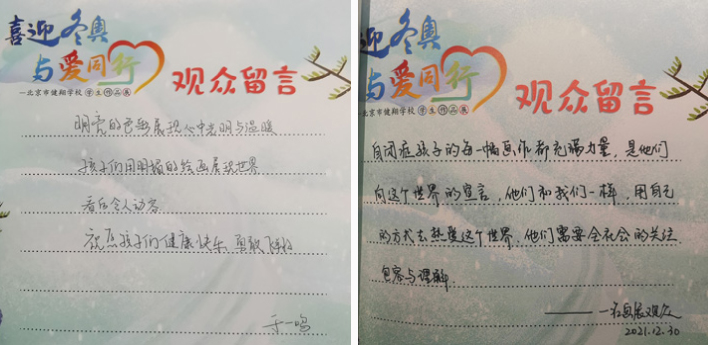 喜迎冬奥
与爱同行
—北京市健翔学校 学生作品展
观众留言
明亮的色彩展现心中光明与温暖
孩子们用用描的绘画展现世界
看后令人动容
祝愿孩子们健康快乐 勇敢
于一鸣
迎冬奥
与爱同行
北京市健翔学校 学生作品展
观众留言
自闭症孩子的每一幅画作都充满力量,是他们
向这个世界的宣言,他们和我们一样,用自己
的方式去热爱这个世界,他们需要全社会的关注
包容与理解.
——一位观展观众
2021.12.30